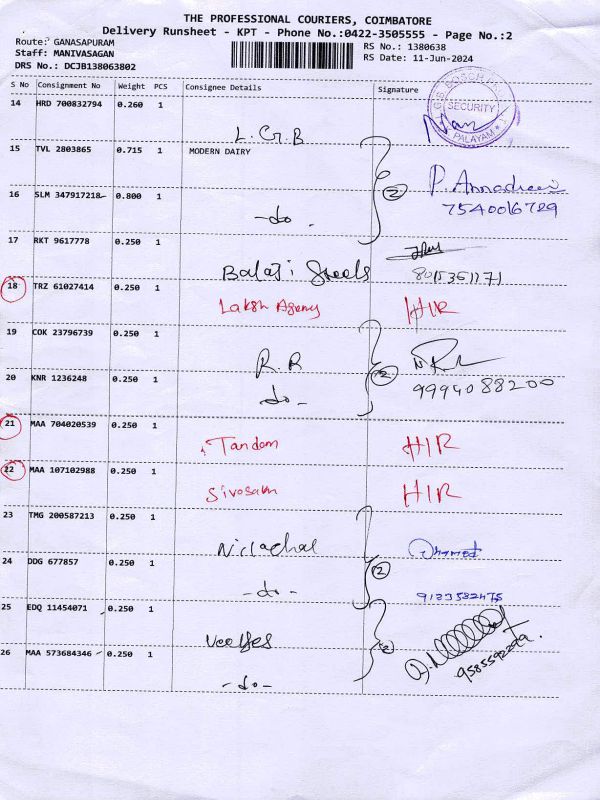 THE PROFESSIONAL COURIERS, COIMBATORE
Delivery Runsheet - KPT - Phone No.:0422-3505555 - Page No.:2
Route: GANASAPURAM
Staff: MANIVASAGAN
DRS No.: DCJB138063802
RS No.: 1380638
RS Date: 11-Jun-2024
S No Consignment No Weight PCS Consignee Details Signature
14 HRD 700832794 0.260 1
L.G.B
SECURITY
PALAYAM
15 TVL 2803865 0.715 1 MODERN DAIRY
2
7540016729
16 SLM 347917218 0.800 1
-do-
17 RKT 9617778 0.250 1
Balaji Steels
8015351171
18 TRZ 61027414 0.250 1
Laksh Agency HIR
19 COK 23796739 0.250 1
R.R
2
20 KNR 1236248 0.250 1
-do-
9994088200
21 MAA 704020539 0.250 1
Tandem HIR
22 MAA 107102988 0.250 1
HIR
23 TMG 200587213 0.250 1
24 DDG 677857 0.250 1
2
-do-
9123582475
25 EDQ 11454071 0.250 1
2
9585592299
26 MAA 573684346 0.250 1
-do-